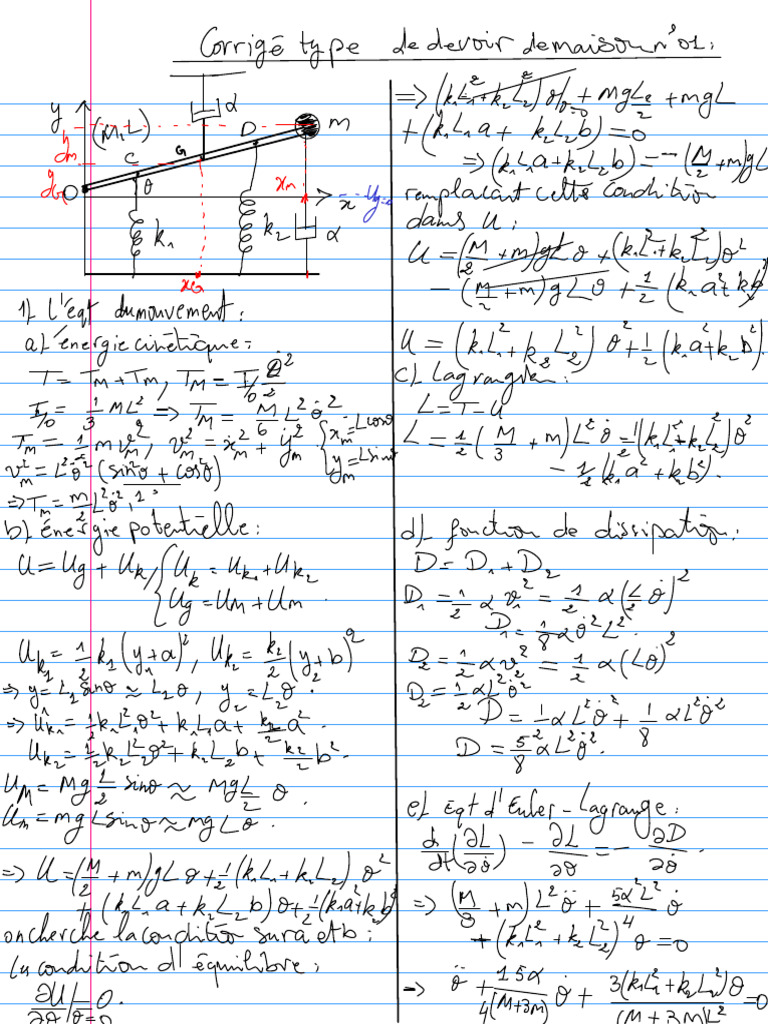 Corrigé type de devoir demaison n°01:
y
α
(M,L)
D
m
ym
C
G
yG
O
θ
xm
x
Ug=0
k₁
k₂
α
xG
1) L'éqt dumouvement:
a) énergie cinétique:
T = T_M + T_m, T_M = I/o θ̇²/2
I/o = 1/3 ML² => T_M = M/6 L² θ̇²
T_m = 1/2 m v_m², v_m² = ẋ_m² + ẏ_m² { x_m = Lcosθ
y_m = Lsinθ
v_m² = L²θ̇² (sin²θ + cos²θ)
=> T_m = m/2 L²θ̇²
b) énergie potentielle:
U = Ug + U_k / { U_k = U_k₁ + U_k₂
Ug = U_M + U_m
U_k₁ = 1/2 k₁(y₁+a)², U_k₂ = k₂/2 (y₂+b)²
=> y₁ = L₁ sinθ ≈ L₁θ, y₂ = L₂θ.
=> U_k₁ = 1/2 k₁L₁²θ² + k₁L₁a + k₁/2 a².
U_k₂ = 1/2 k₂L₂²θ² + k₂L₂b + k₂/2 b².
U_M = Mg L/2 sinθ ≈ MgL/2 θ
U_m = mgLsinθ ≈ mgLθ.
=> U = (M/2 + m)gLθ + 1/2 (k₁L₁ + k₂L₂) θ²
+ (k₁L₁a + k₂L₂b)θ + 1/2 (k₁a² + k₂b²)
on cherche la condition sur a et b:
la condition d'équilibre:
∂U/∂θ |θ=0 = 0.
=> (k₁L₁² + k₂L₂²)θ/θ=0 + MgL/2 + mgL
+ (k₁L₁a + k₂L₂b) = 0
=> (k₁L₁a + k₂L₂b) = -(M/2 + m)gL
remplaçant cette condition
dans U:
U = (M/2 + m)gLθ + (k₁L₁² + k₂L₂²)θ²
- (M/2 + m)gLθ + 1/2 (k₁a² + kb²)
U = (k₁L₁² + k₂L₂²)θ² + 1/2 (k₁a² + k₂b²).
c) Lagrangien:
L = T - U
L = 1/2 (M/3 + m)L²θ̇² - 1/2 (k₁L₁² + k₂L₂²)θ²
- 1/2 (k₁a² + k₂b²).
d) fonction de dissipation:
D = D₁ + D₂
D₁ = 1/2 αv₁² = 1/2 α(L/2 θ̇)²
D₁ = 1/8 αθ̇²L².
D₂ = 1/2 αv² = 1/2 α(Lθ̇)²
D₂ = 1/2 αL²θ̇²
D = 1/2 αL²θ̇² + 1/8 αL²θ̇²
D = 5/8 αL²θ̇².
e) Eqt d'Euler-Lagrange:
d/dt (∂L/∂θ̇) - ∂L/∂θ = - ∂D/∂θ̇.
=> (M/3 + m)L²θ̈ + 5αL²/4 θ̇
+ (k₁L₁² + k₂L₂²)θ = 0
=> θ̈ + 15α/4(M+3m) θ̇ + 3(k₁L₁² + k₂L₂²)θ/(M+3m)L² = 0